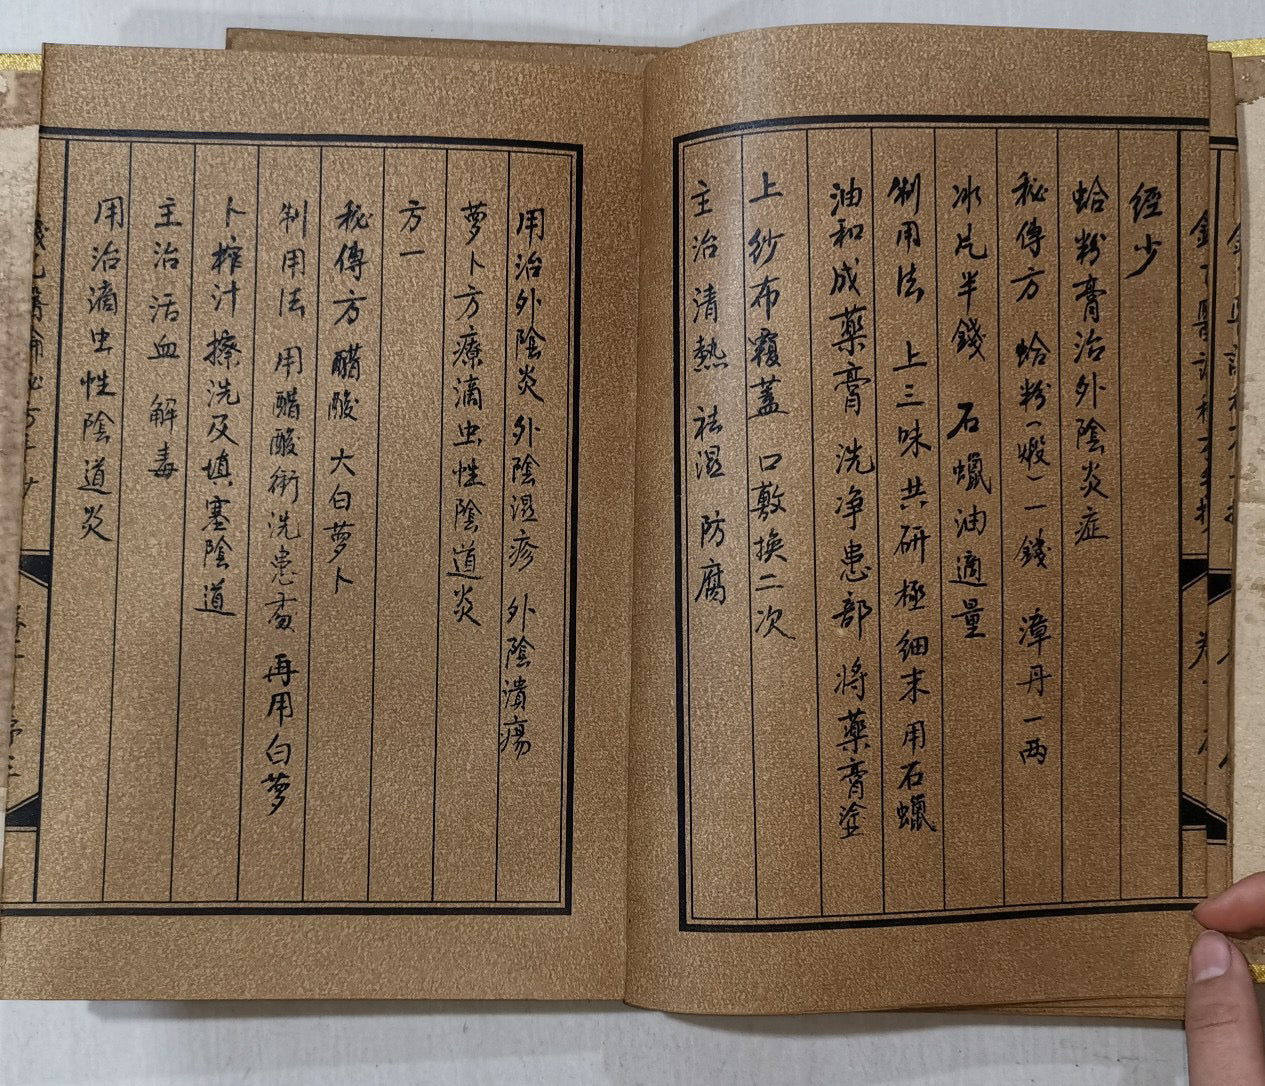 經少
蛤粉膏治外陰炎症
秘傳方 蛤粉(煅)一錢 漳丹一两
冰片半錢 石蠟油適量
制用法 上三味共研極細末用石蠟
油和成藥膏 洗净患部 将藥膏塗
上纱布覆蓋 口敷换二次
主治清熱 祛濕 防腐
用治外陰炎 外陰濕疹 外陰潰瘍
萝卜方療滴虫性陰道炎
方一
秘傳方 醋酸 大白萝卜
制用法 用醋酸衝洗患 再用白萝
卜榨汁 擦洗及填塞陰道
主治活血 解毒
用治滴虫性陰道炎